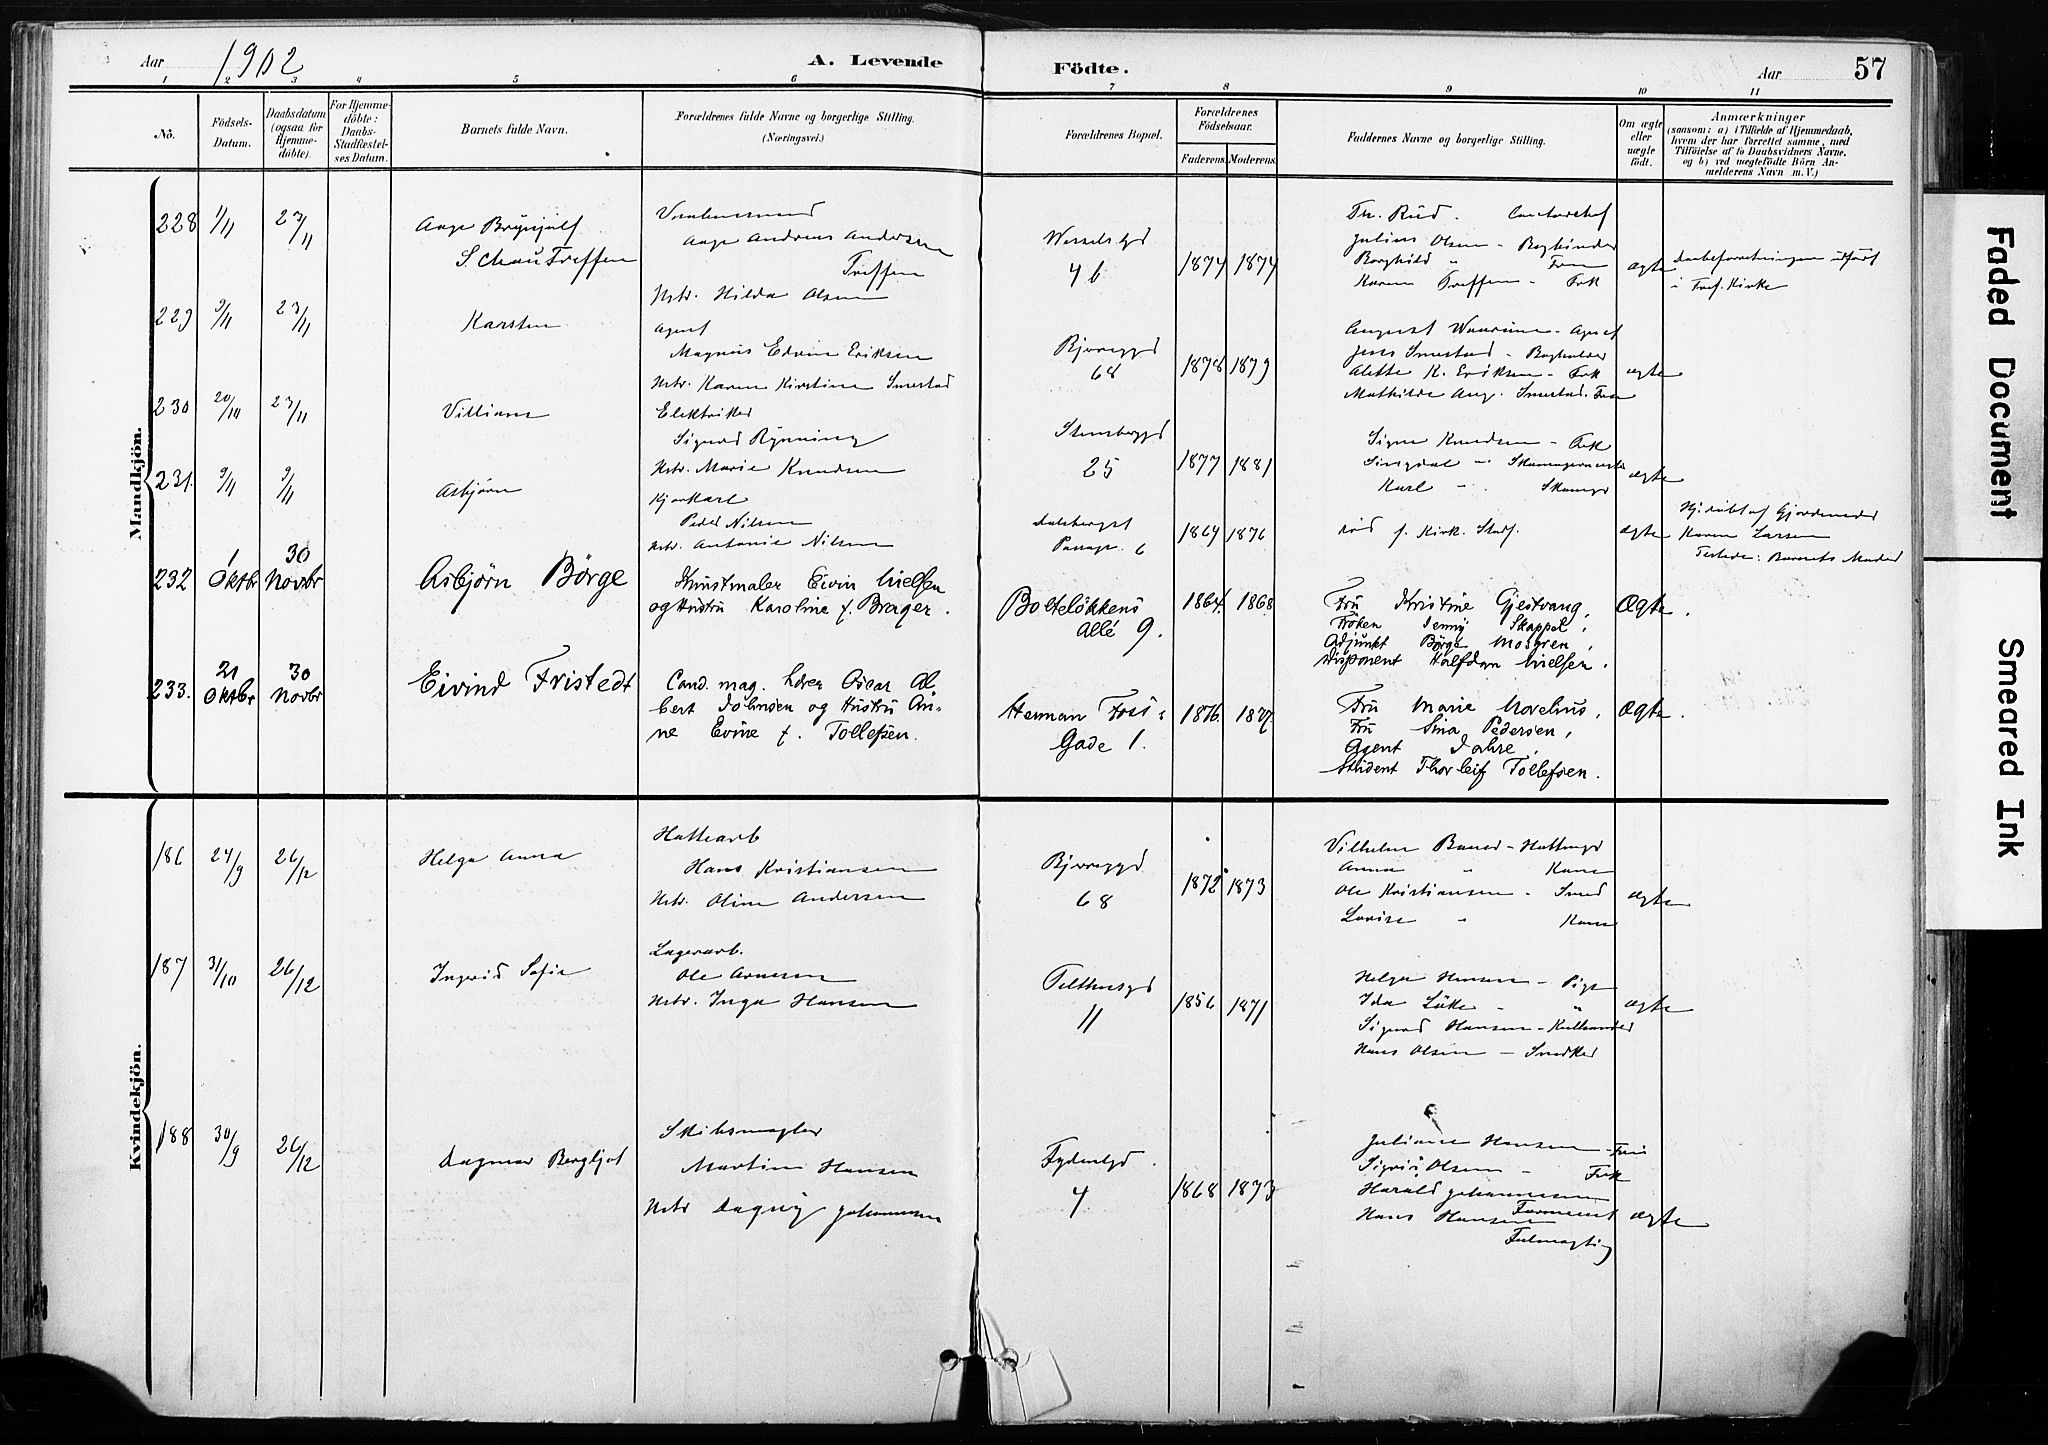 Aar 1902 A. Levende Födte. Aar 57
1 2 3 4 5 6 7 8 9 10 11
No.
Födsels-Datum.
Daabsdatum (ogsaa for Hjemmedöbte).
For Hjemmedöbte: Daabs-Stadfæstelses Datum.
Barnets fulde Navn.
Forældrenes fulde Navne og borgerlige Stilling.
(Næringsvei.)
Forældrenes Bopæl.
Forældrenes Födselsaar.
Faderens. Moderens.
Faddernes Navne og borgerlige Stilling.
Om ægte eller uægte födt.
Anmærkninger
(saasom: a) i Tilfælde af Hjemmedaab,
hvem der har forrettet samme, med
Tilföielse af to Daabsvidners Navne,
og b) ved uægtefödte Börn Anmelderens Navn m. V.)
Mandkjön.
228 1/11 23/11 Aage Brynjulf
Schau Treffen
Aage Andreas Andersen
Treffen
Hstr. Hilda Olsen
Wesselsgd
4 b 1874 1874
Th. Rud.
Julius Olsen - Bogbinder
Borghild " Frue
Karen Treffen - Frk
ægte
Daabsforretningen udført
i Tref. Kirke
229 9/11 23/11 Karsten
Agent
Magnus Edvin Eriksen
Hstr. Karen Kirstine Smestad
Bjerregd
68 1878 1879
August - Agent
Jens Smestad - Bogholder
Alette K. Eriksen - Frk
Mathilde Aug. Smestad. Frue
ægte
230 20/10 23/11 Villiam
Elektriker
Sigurd Rynning
Hstr. Marie Knudsen
Stensberggd
25 1877 1881
Signe Knudsen - Frk
Karl
ægte
231. 9/11 9/11 Asbjørn
Kjørekarl
Peder Nilsen
Hstr. Antonie Nilsen
Dalsberget
Passage 6 1864 1876
ægte
Hj.døbt af Gjordemoder
Karen Larsen
Testede: Barnets Moder
232 1 Oktbr 30 Novbr Asbjørn Börge
Kunstmaler Eivin Nielsen
og Hustru Karoline f. Brager.
Bolteløkkens
Allé 9. 1864. 1868
Fru Kristine Gjestvang,
Frøken Jenny Skappel,
Adjunkt Börge Mosgren,
Disponent Halfdan Nielsen.
Ægte.
233. 21 Oktbr 30 Novbr Eivind Fristedt
Cand. mag. Lærer Oscar Al-
bert Johnsen og Hustru An-
ne Evine f. Tollefsen.
Herman Foss's
Gade 1. 1876.
Fru Marie Morehus,
Fru Sina Pedersen,
Agent Jahre,
Student Thorleif Tollefsen.
Ægte.
Kvindekjön.
186 24/9 26/12 Helga Anna
Hattearb
Hans Kristiansen
Hstr. Oline Andersen
Bjerregd
68 1872 1873
Vilhelm Bauer - Hattmgd
Anna " Kone
Ole Kristiansen - Smed
Lovise " Kone
ægte
187 31/10 26/12 Ingrid Sofie
Lagerarb.
Ole Arnesen
Hstr. Inga Hansen
Telthusgd
11 1856 1871
Helga Hansen - Pige
Ida Lükke - "
Sigurd Hansen - Kulhandler
Hans Olsen - Snedker
ægte
188 30/9 26/12 Dagmar Bergljot
Skibsmægler
Martin Hansen
Hstr Dagny Johannesen
Fydenlgd.
4 1868 1873
Juliane Hansen - Frue
Sigrid Olsen - Frk
Harald Johannesen
Hans Hansen
Fulmægtig
ægte
Faded Document
Smeared Ink